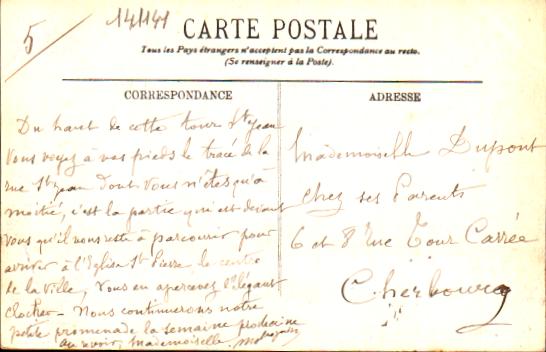 5
141141
CARTE POSTALE
Tous les Pays étrangers n'acceptent pas la Correspondance au recto.
(Se renseigner à la Poste).
CORRESPONDANCE
Du haut de cette tour St Jean
vous voyez à vos pieds le tracé de la
rue St Jean dont vous n'êtes qu'à
moitié, c'est la partie qui est devant
vous qu'il nous reste à parcourir pour
arriver à l'Eglise St Pierre, le centre
de la ville, vous en apercevez l'élégant
clocher - Nous continuerons notre
petite promenade la semaine prochaine
au revoir, Mademoiselle
ADRESSE
Mademoiselle Dupont
Chez ses Parents
6 et 8 Rue Tour Carrée
Cherbourg